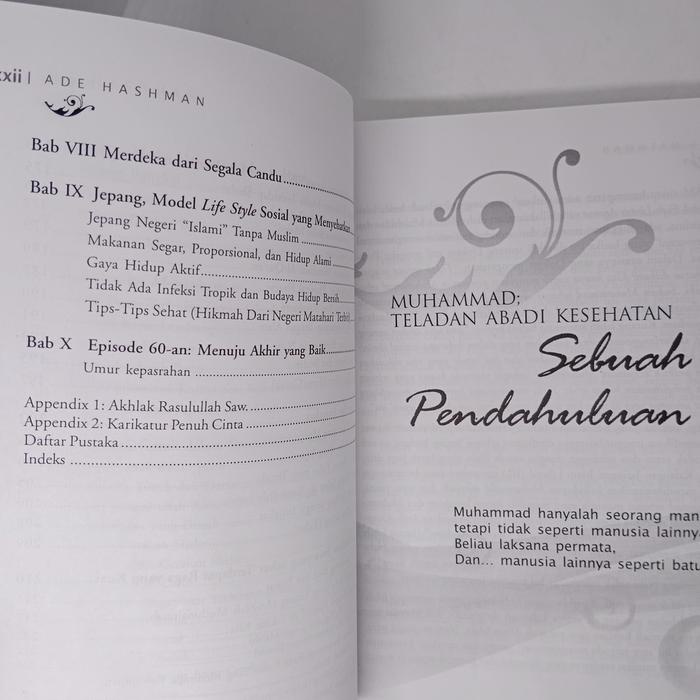 xxii | ADE HASHMAN
Bab VIII Merdeka dari Segala Candu
Bab IX Jepang, Model Life Style Sosial yang Menyehatkan
Jepang Negeri "Islami" Tanpa Muslim
Makanan Segar, Proporsional, dan Hidup Alami
Gaya Hidup Aktif
Tidak Ada Infeksi Tropik dan Budaya Hidup Bersih
Tips-Tips Sehat (Hikmah Dari Negeri Matahari Terbit)
Bab X Episode 60-an: Menuju Akhir yang Baik
Umur kepasrahan
Appendix 1: Akhlak Rasulullah Saw.
Appendix 2: Karikatur Penuh Cinta
Daftar Pustaka
Indeks
MUHAMMAD;
TELADAN ABADI KESEHATAN
Sebuah
Pendahuluan
Muhammad hanyalah seorang man
tetapi tidak seperti manusia lainny
Beliau laksana permata,
Dan... manusia lainnya seperti batu